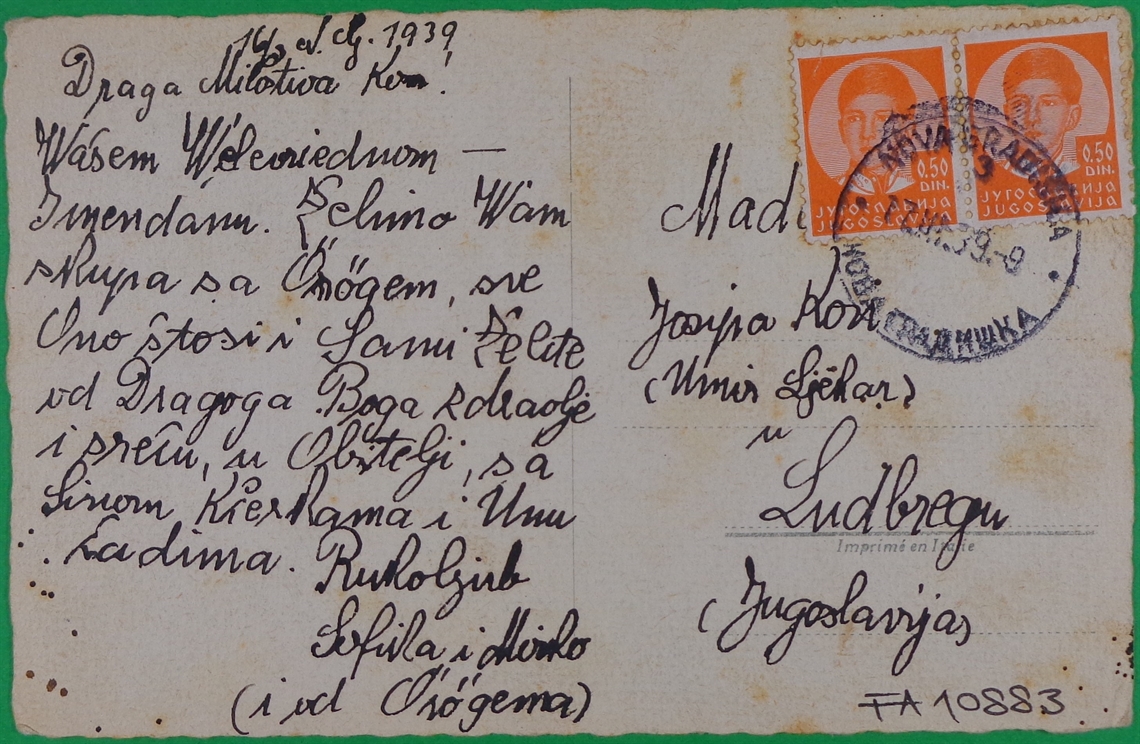 1939
Draga Milostiva Kon.
Wašem Wélevriednom —
Imendánu. Želimo Wam
skupa sa Örögem, sve
Ono štosi i Sami Želite
od Dragoga Boga zdravlje
i sreću, u Obitelji, sa
Sinom, Kćerkama i Unu
kadima. Rukoljub
Sofika i Mirko
(i od Örögema)
Mad
Josipa Kon
(Umir Ljékar)
u
Ludbregu
(Jugoslavija)
Imprimé en Italie
0.50
DIN.
ЈУГОСЛАВИЈА
JUGOSLAVIJA
0.50
DIN.
ЈУГОСЛАВИЈА
JUGOSLAVIJA
NOVA GRADIŠKA
НОВА ГРАДИШКА
FA 10883